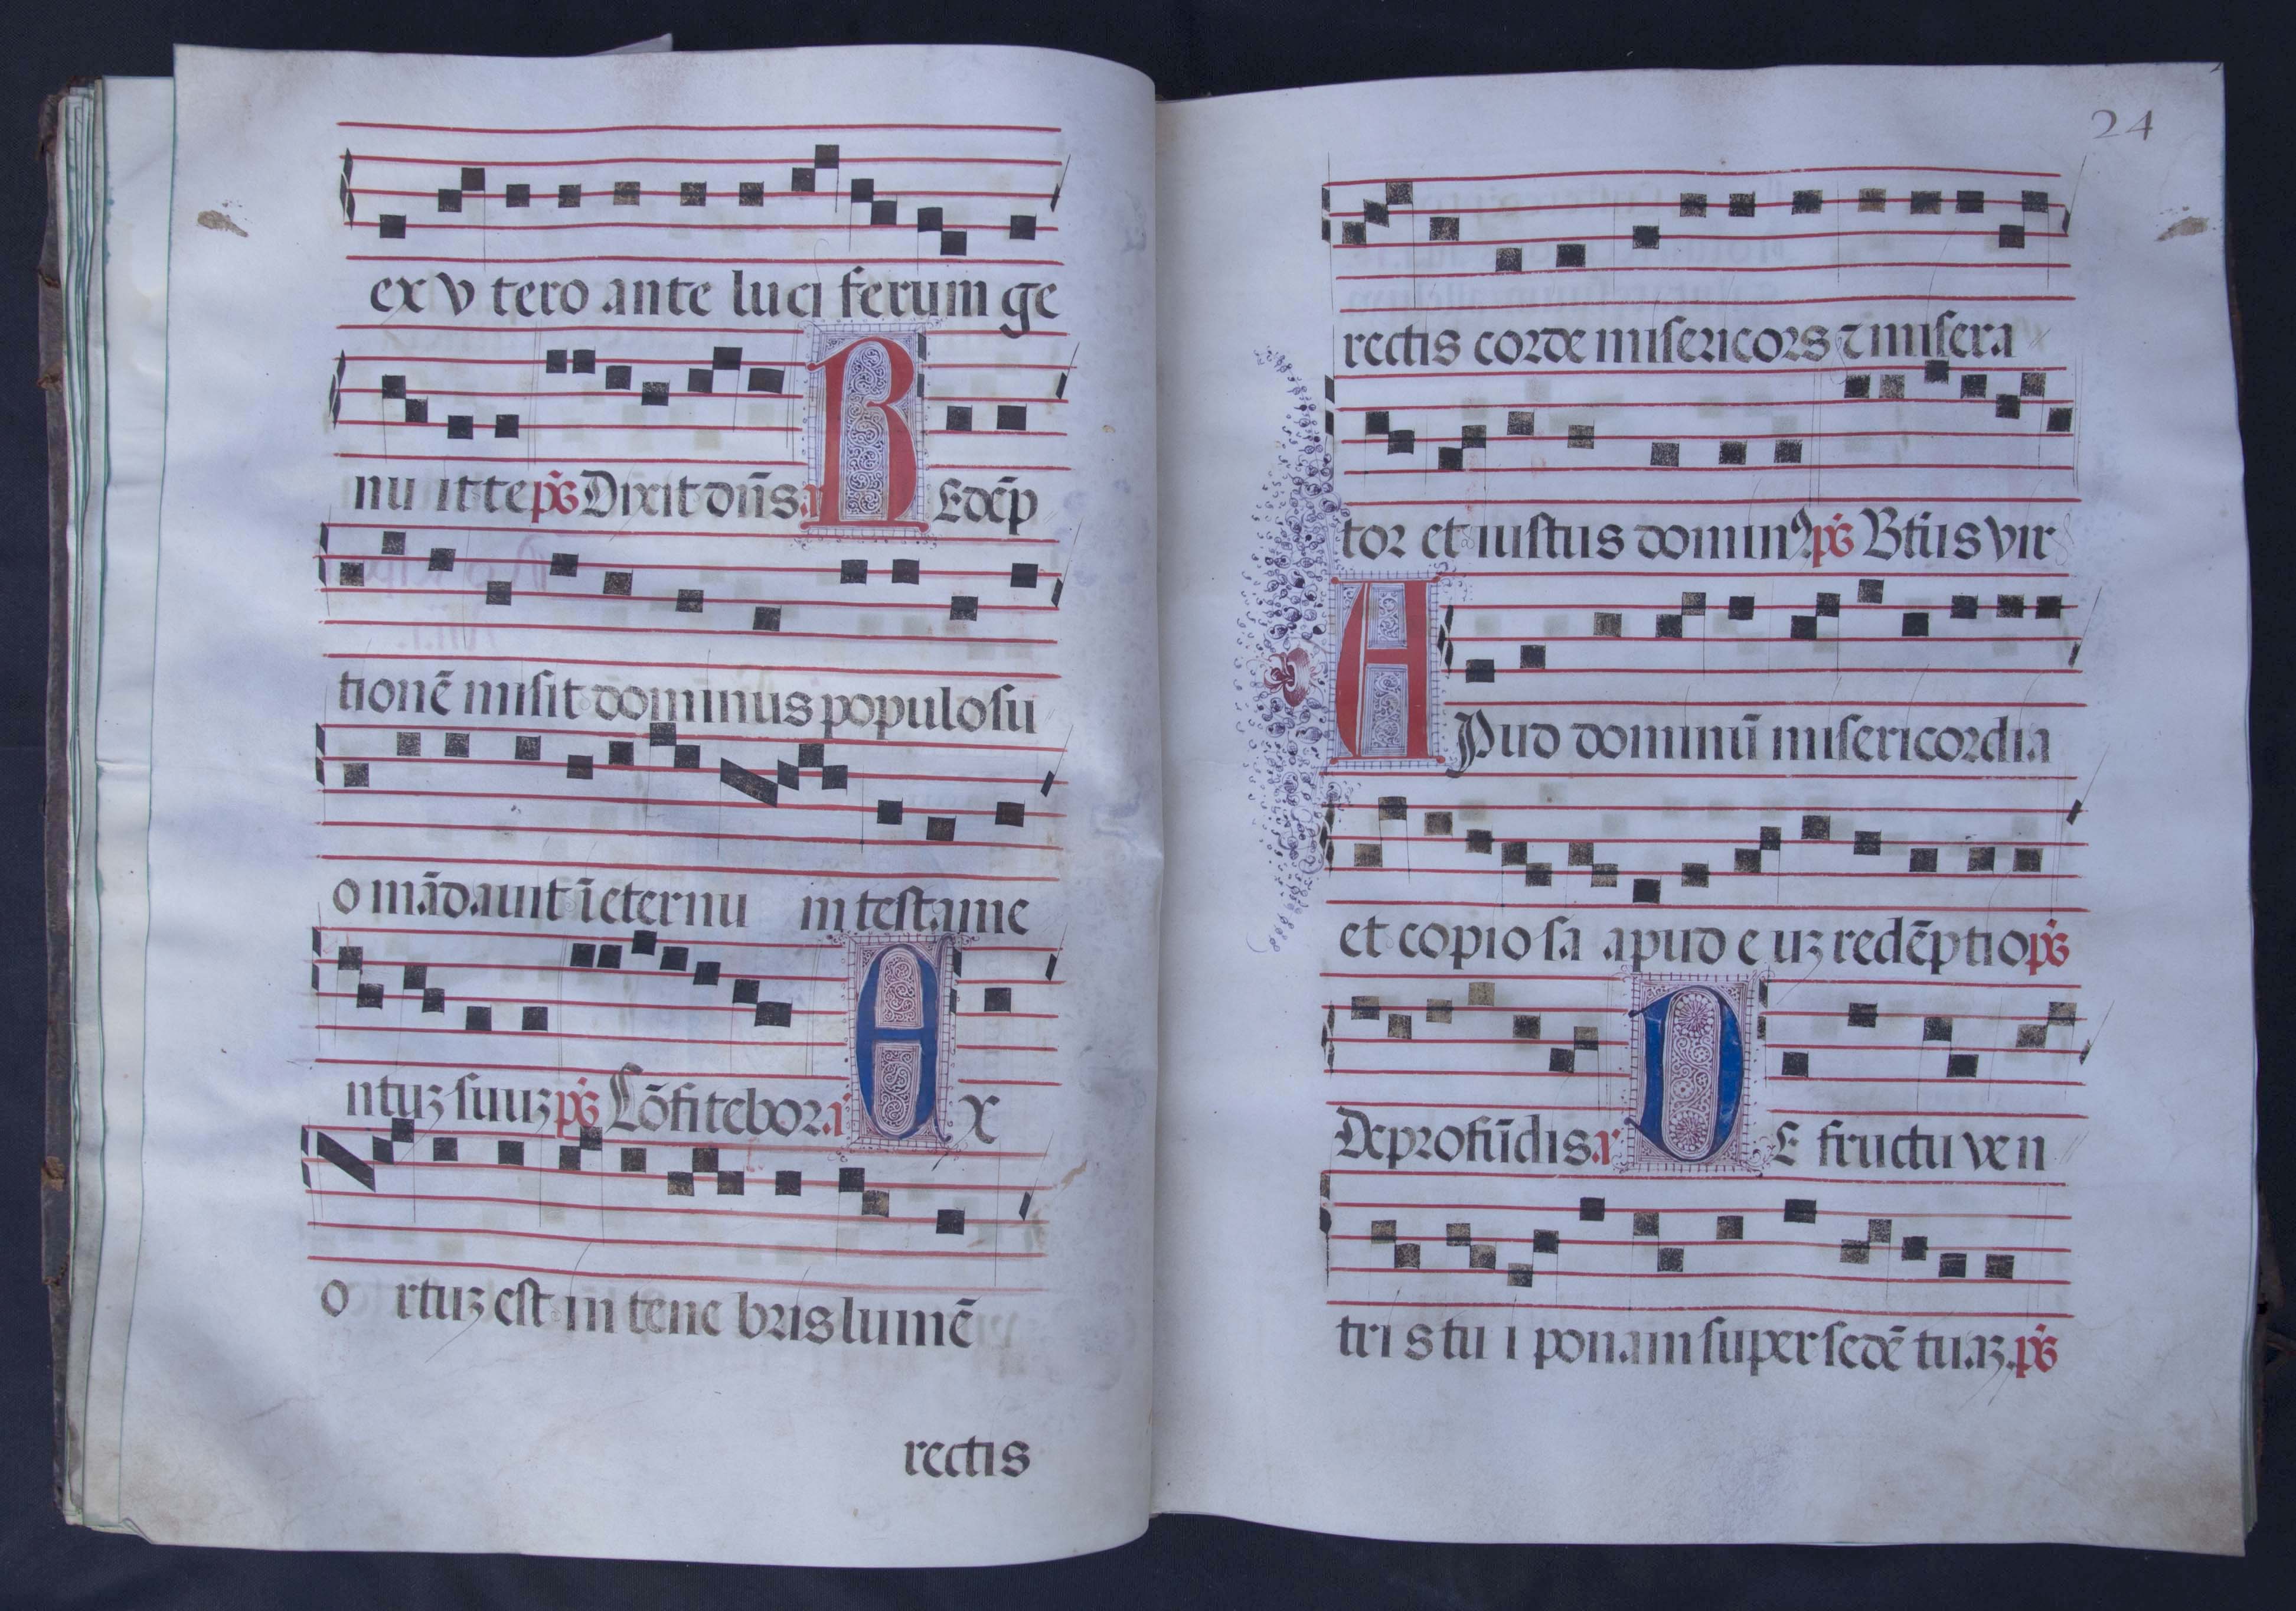 ex vtero ante luciferum ge
nuit te p̃s Dixit dñs. a R Edẽp
tionẽ misit dominus populo su
o mãdauit ĩ eternu in testame
ntuʒ suuʒ p̃s Cõfitebor. a E x
ortuʒ est in tenebris lumẽ
rectis
24
rectis corde misericors ⁊ misera
tor et iustus dominꝰ p̃s Btũs vir
A Pud dominũ misericordia
et copiosa apud euʒ redẽptio p̃s
De profũdis. a D E fructu ven
tris tui ponam super sedẽ tuaʒ. p̃s